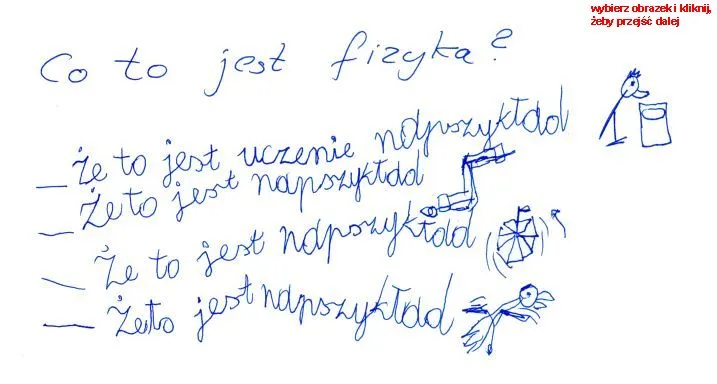 wybierz obrazek i kliknij,
żeby przejść dalej
Co to jest fizyka?
— Że to jest uczenie napszykład
— Że to jest napszykład
— Że to jest napszykład
— Że to jest napszykład